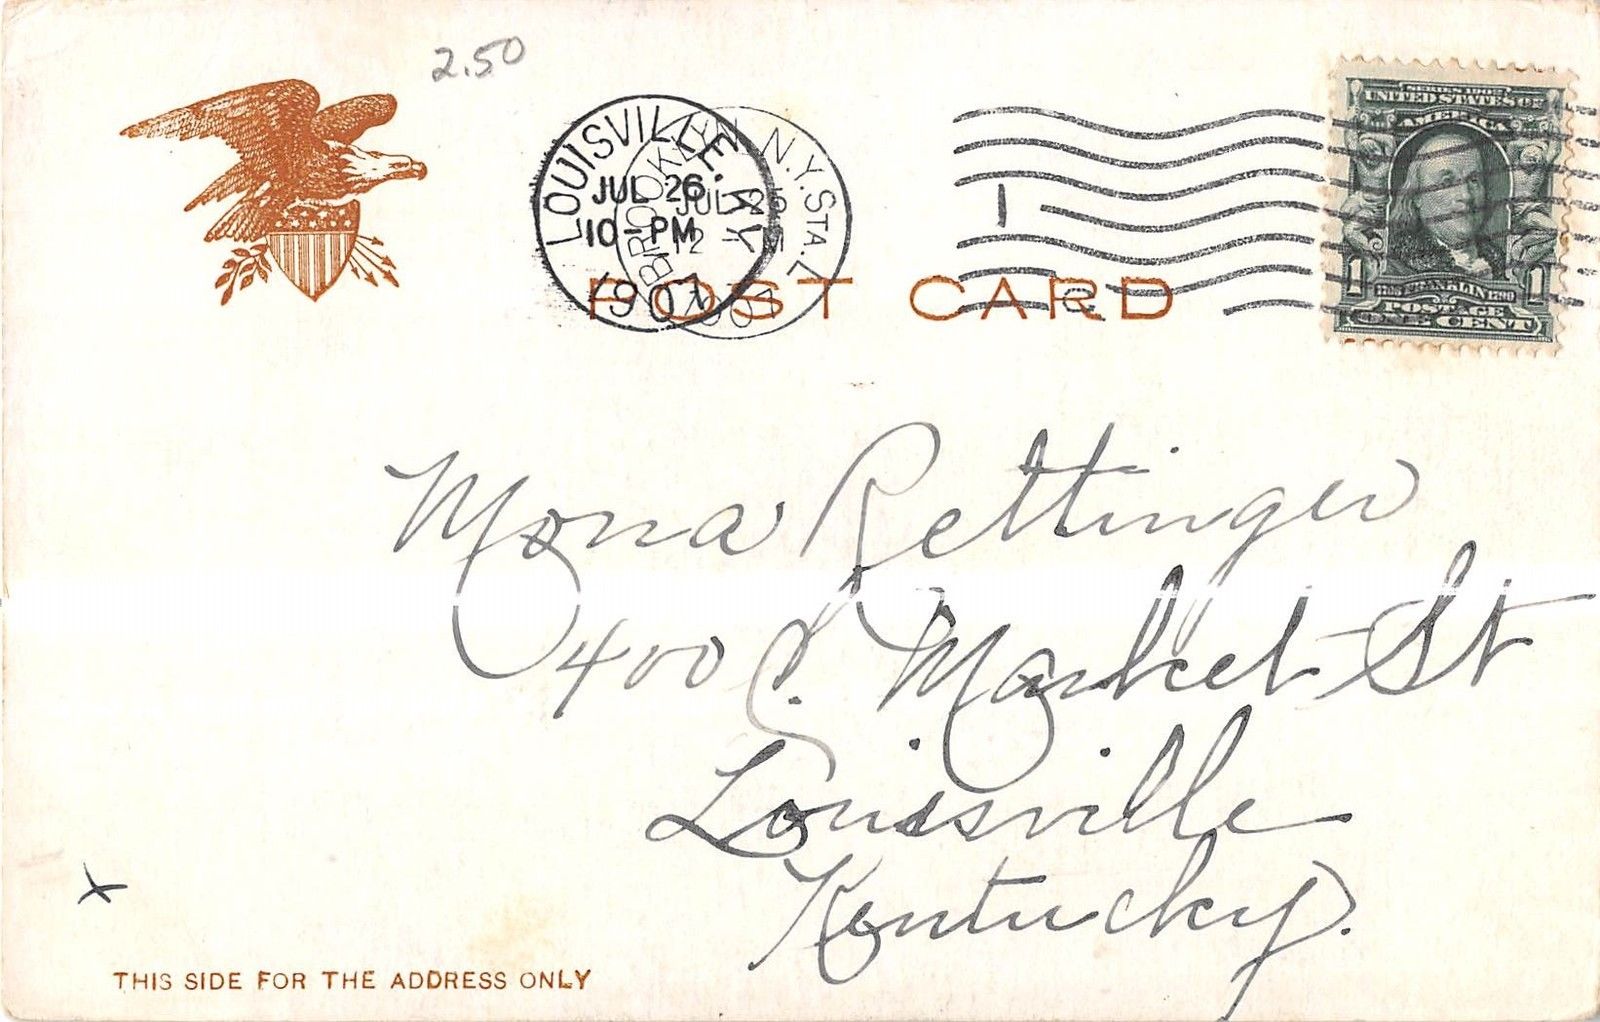 2.50
LOUISVILLE, KY.
JUL 26
10-PM
1907
BROOKLYN N.Y. STA. L
JUL 25
12 M
1
SERIES 1902
UNITED STATES OF
AMERICA
1 BENJ. FRANKLIN 1
POSTAGE
ONE CENT
POST CARD
Mona Rettinger
400 E. Market St
Louisville
Kentucky.
x
THIS SIDE FOR THE ADDRESS ONLY